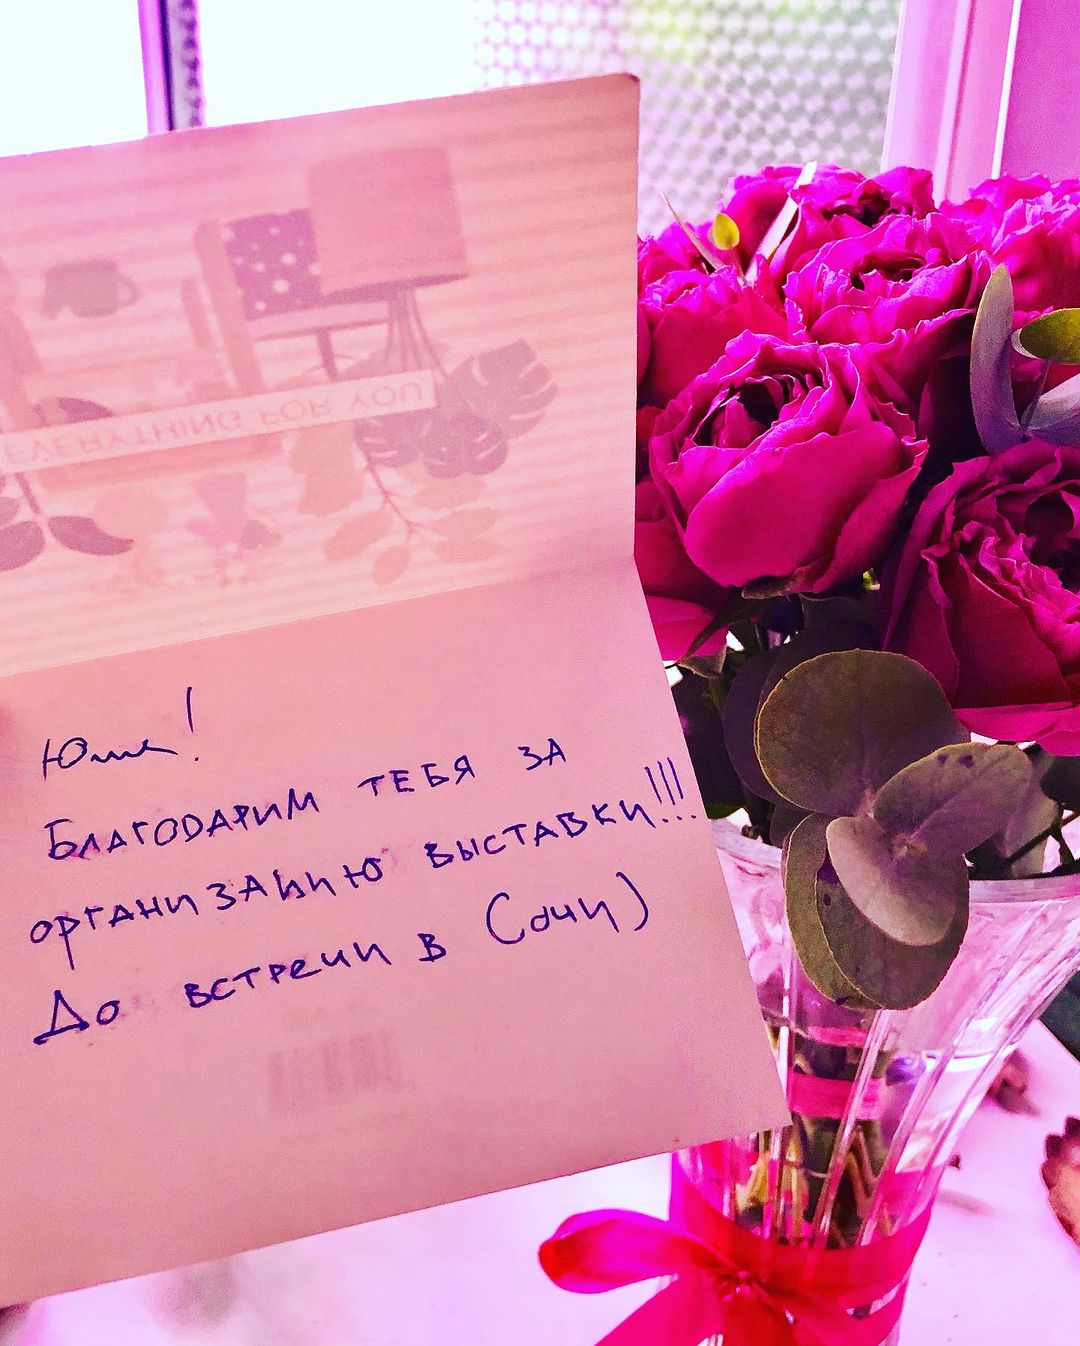 EVERYTHING FOR YOU
Юля!
Благодарим тебя за
организацию выставки!!!
До встречи в Сочи)